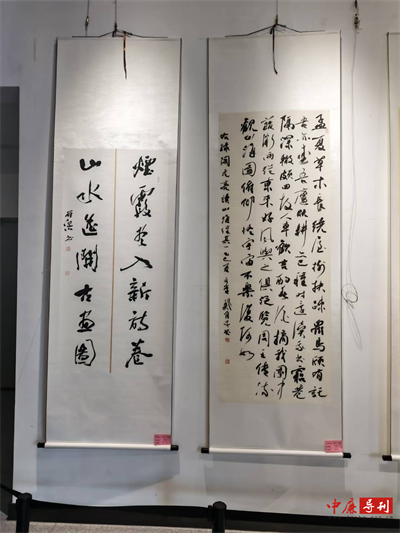 孟夏草木長繞屋樹扶疏眾鳥欣有託
吾亦愛吾廬既耕亦已種時還讀我書窮巷
隔深轍頗回故人車歡言酌春酒摘我園中
蔬微雨從東來好風與之俱汎覽周王傳流
觀山海圖俯仰終宇宙不樂復何如
陶元亮讀山海經其一乙巳夏
煙霞尽入新詩卷
山水開古畫圖
中廉导刊